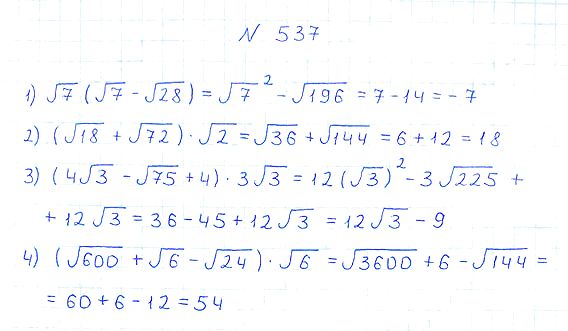 N 537
1) √7 (√7 - √28) = √7² - √196 = 7 - 14 = - 7
2) (√18 + √72) · √2 = √36 + √144 = 6 + 12 = 18
3) (4√3 - √75 + 4) · 3√3 = 12(√3)² - 3√225 +
+ 12√3 = 36 - 45 + 12√3 = 12√3 - 9
4) (√600 + √6 - √24) · √6 = √3600 + 6 - √144 =
= 60 + 6 - 12 = 54